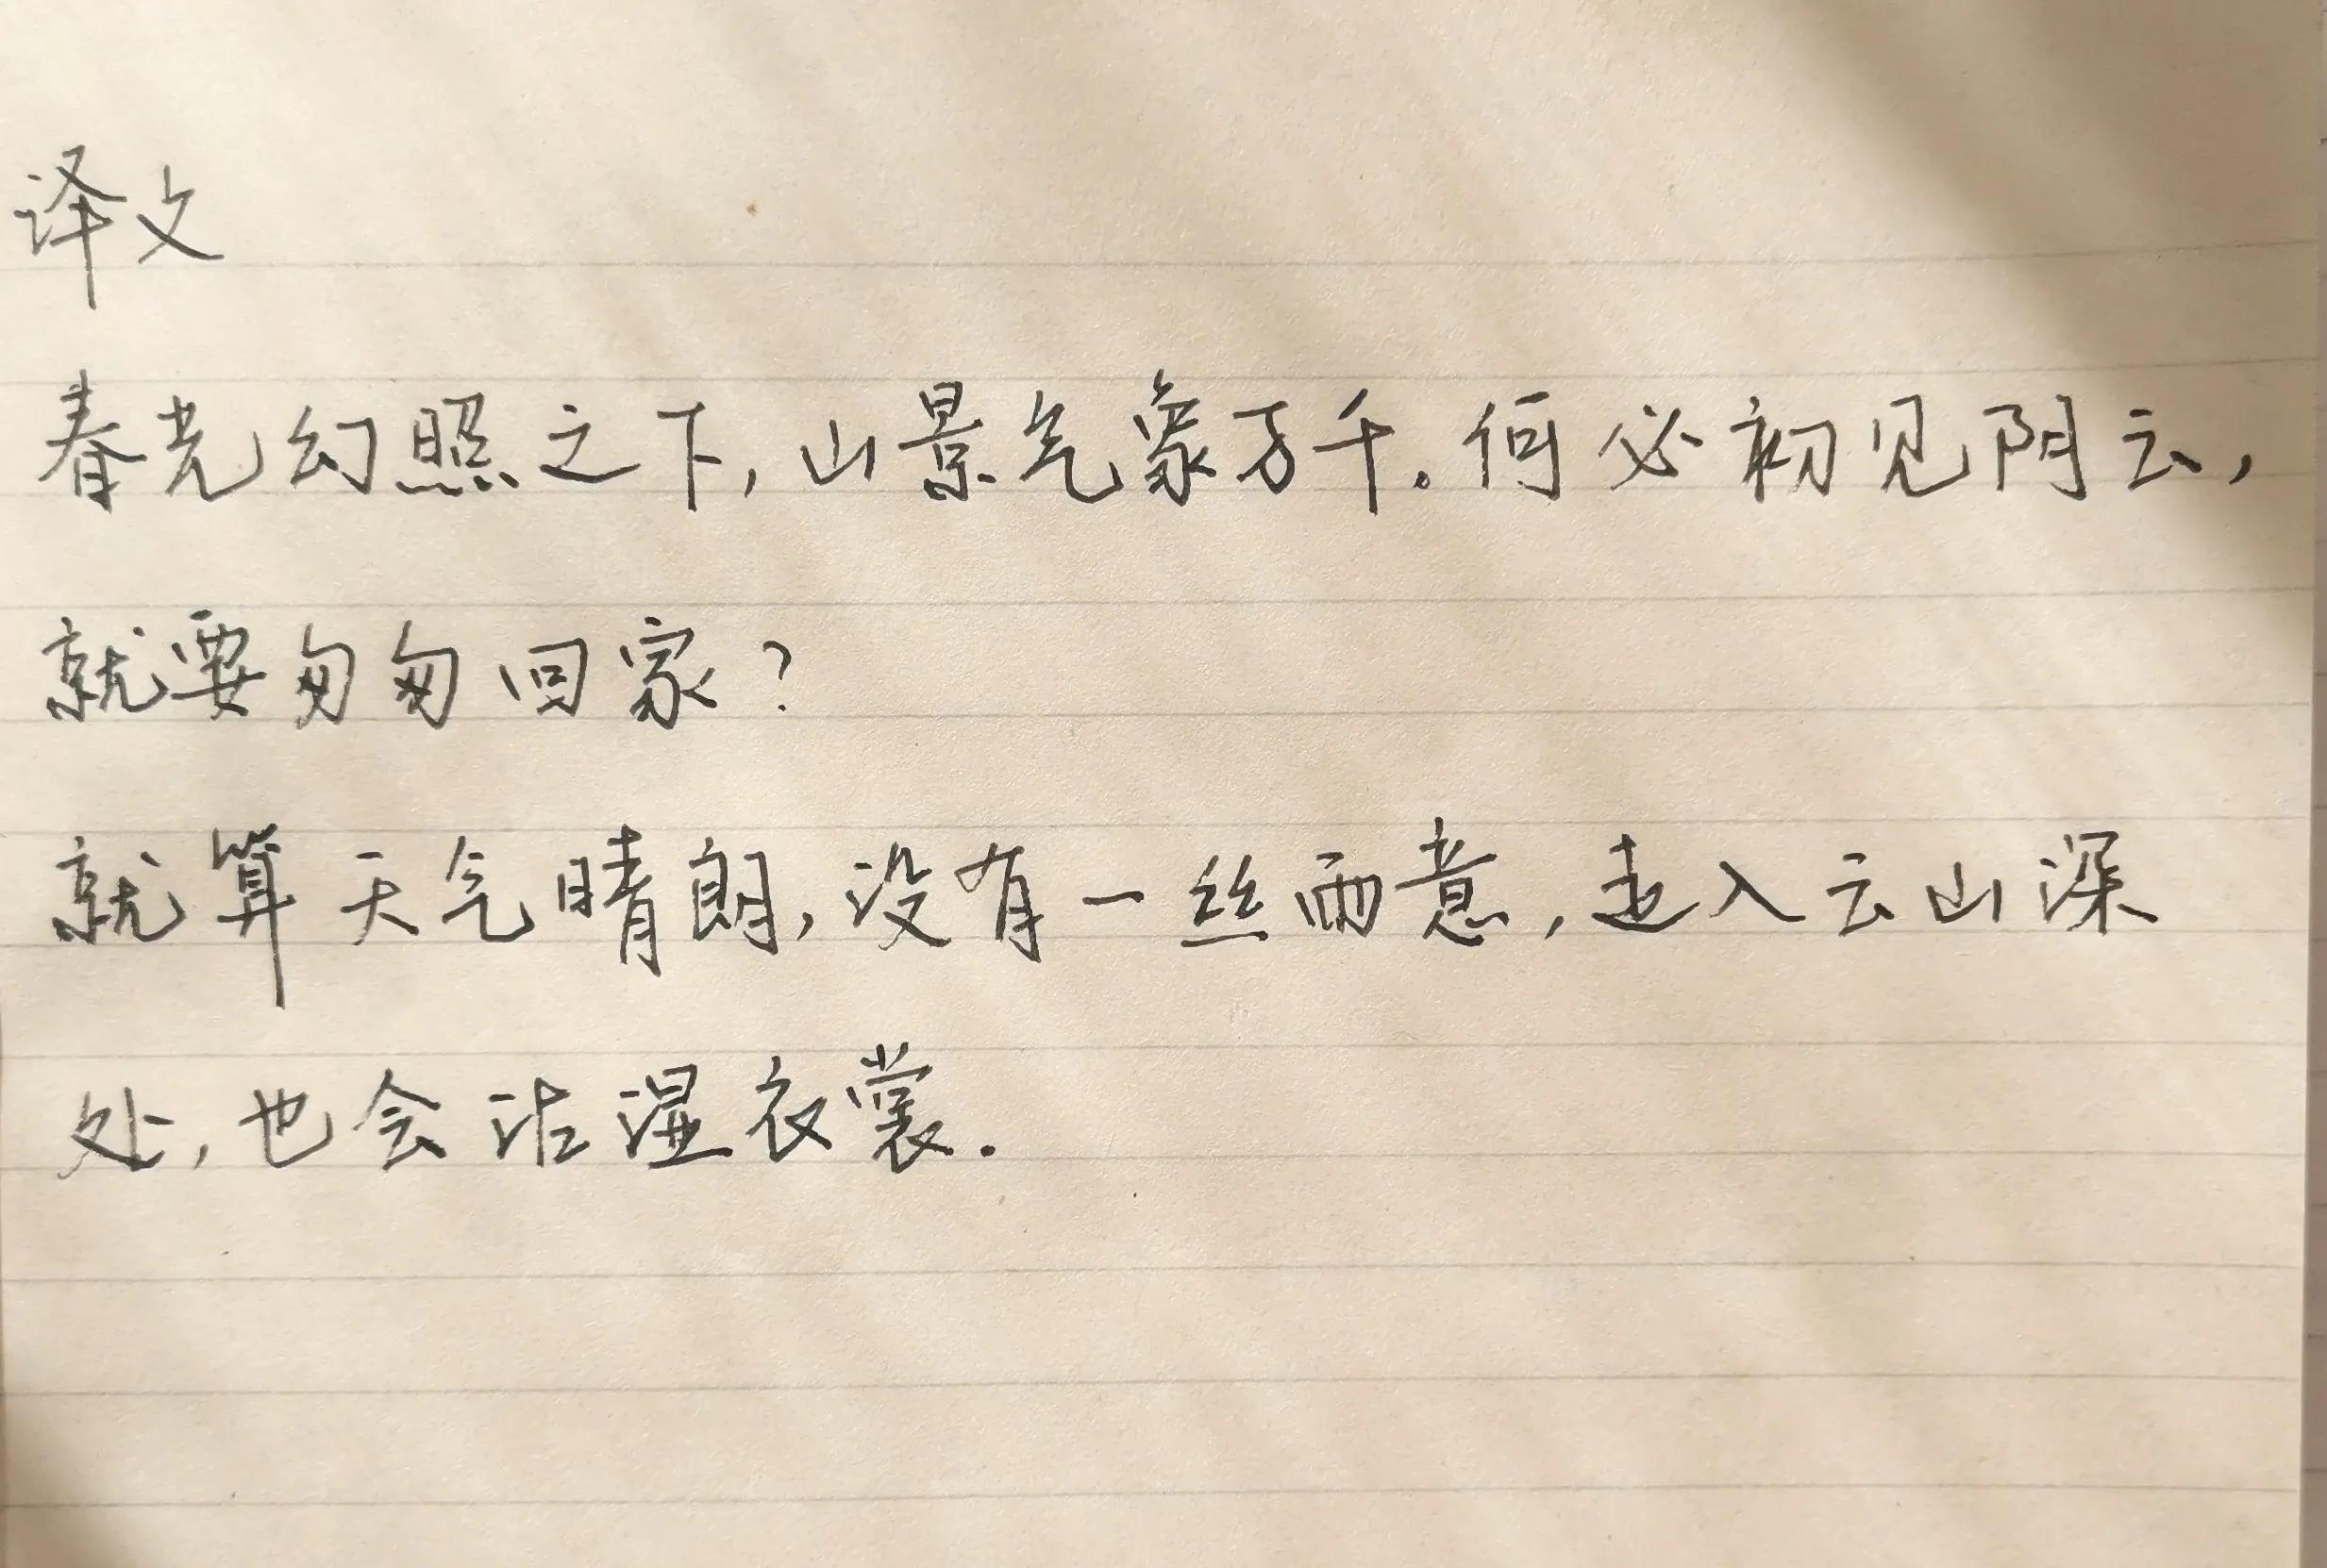 译文
春光幻照之下,山景气象万千。何必初见阴云,
就要匆匆回家?
就算天气晴朗,没有一丝雨意,走入云山深
处,也会沾湿衣裳.